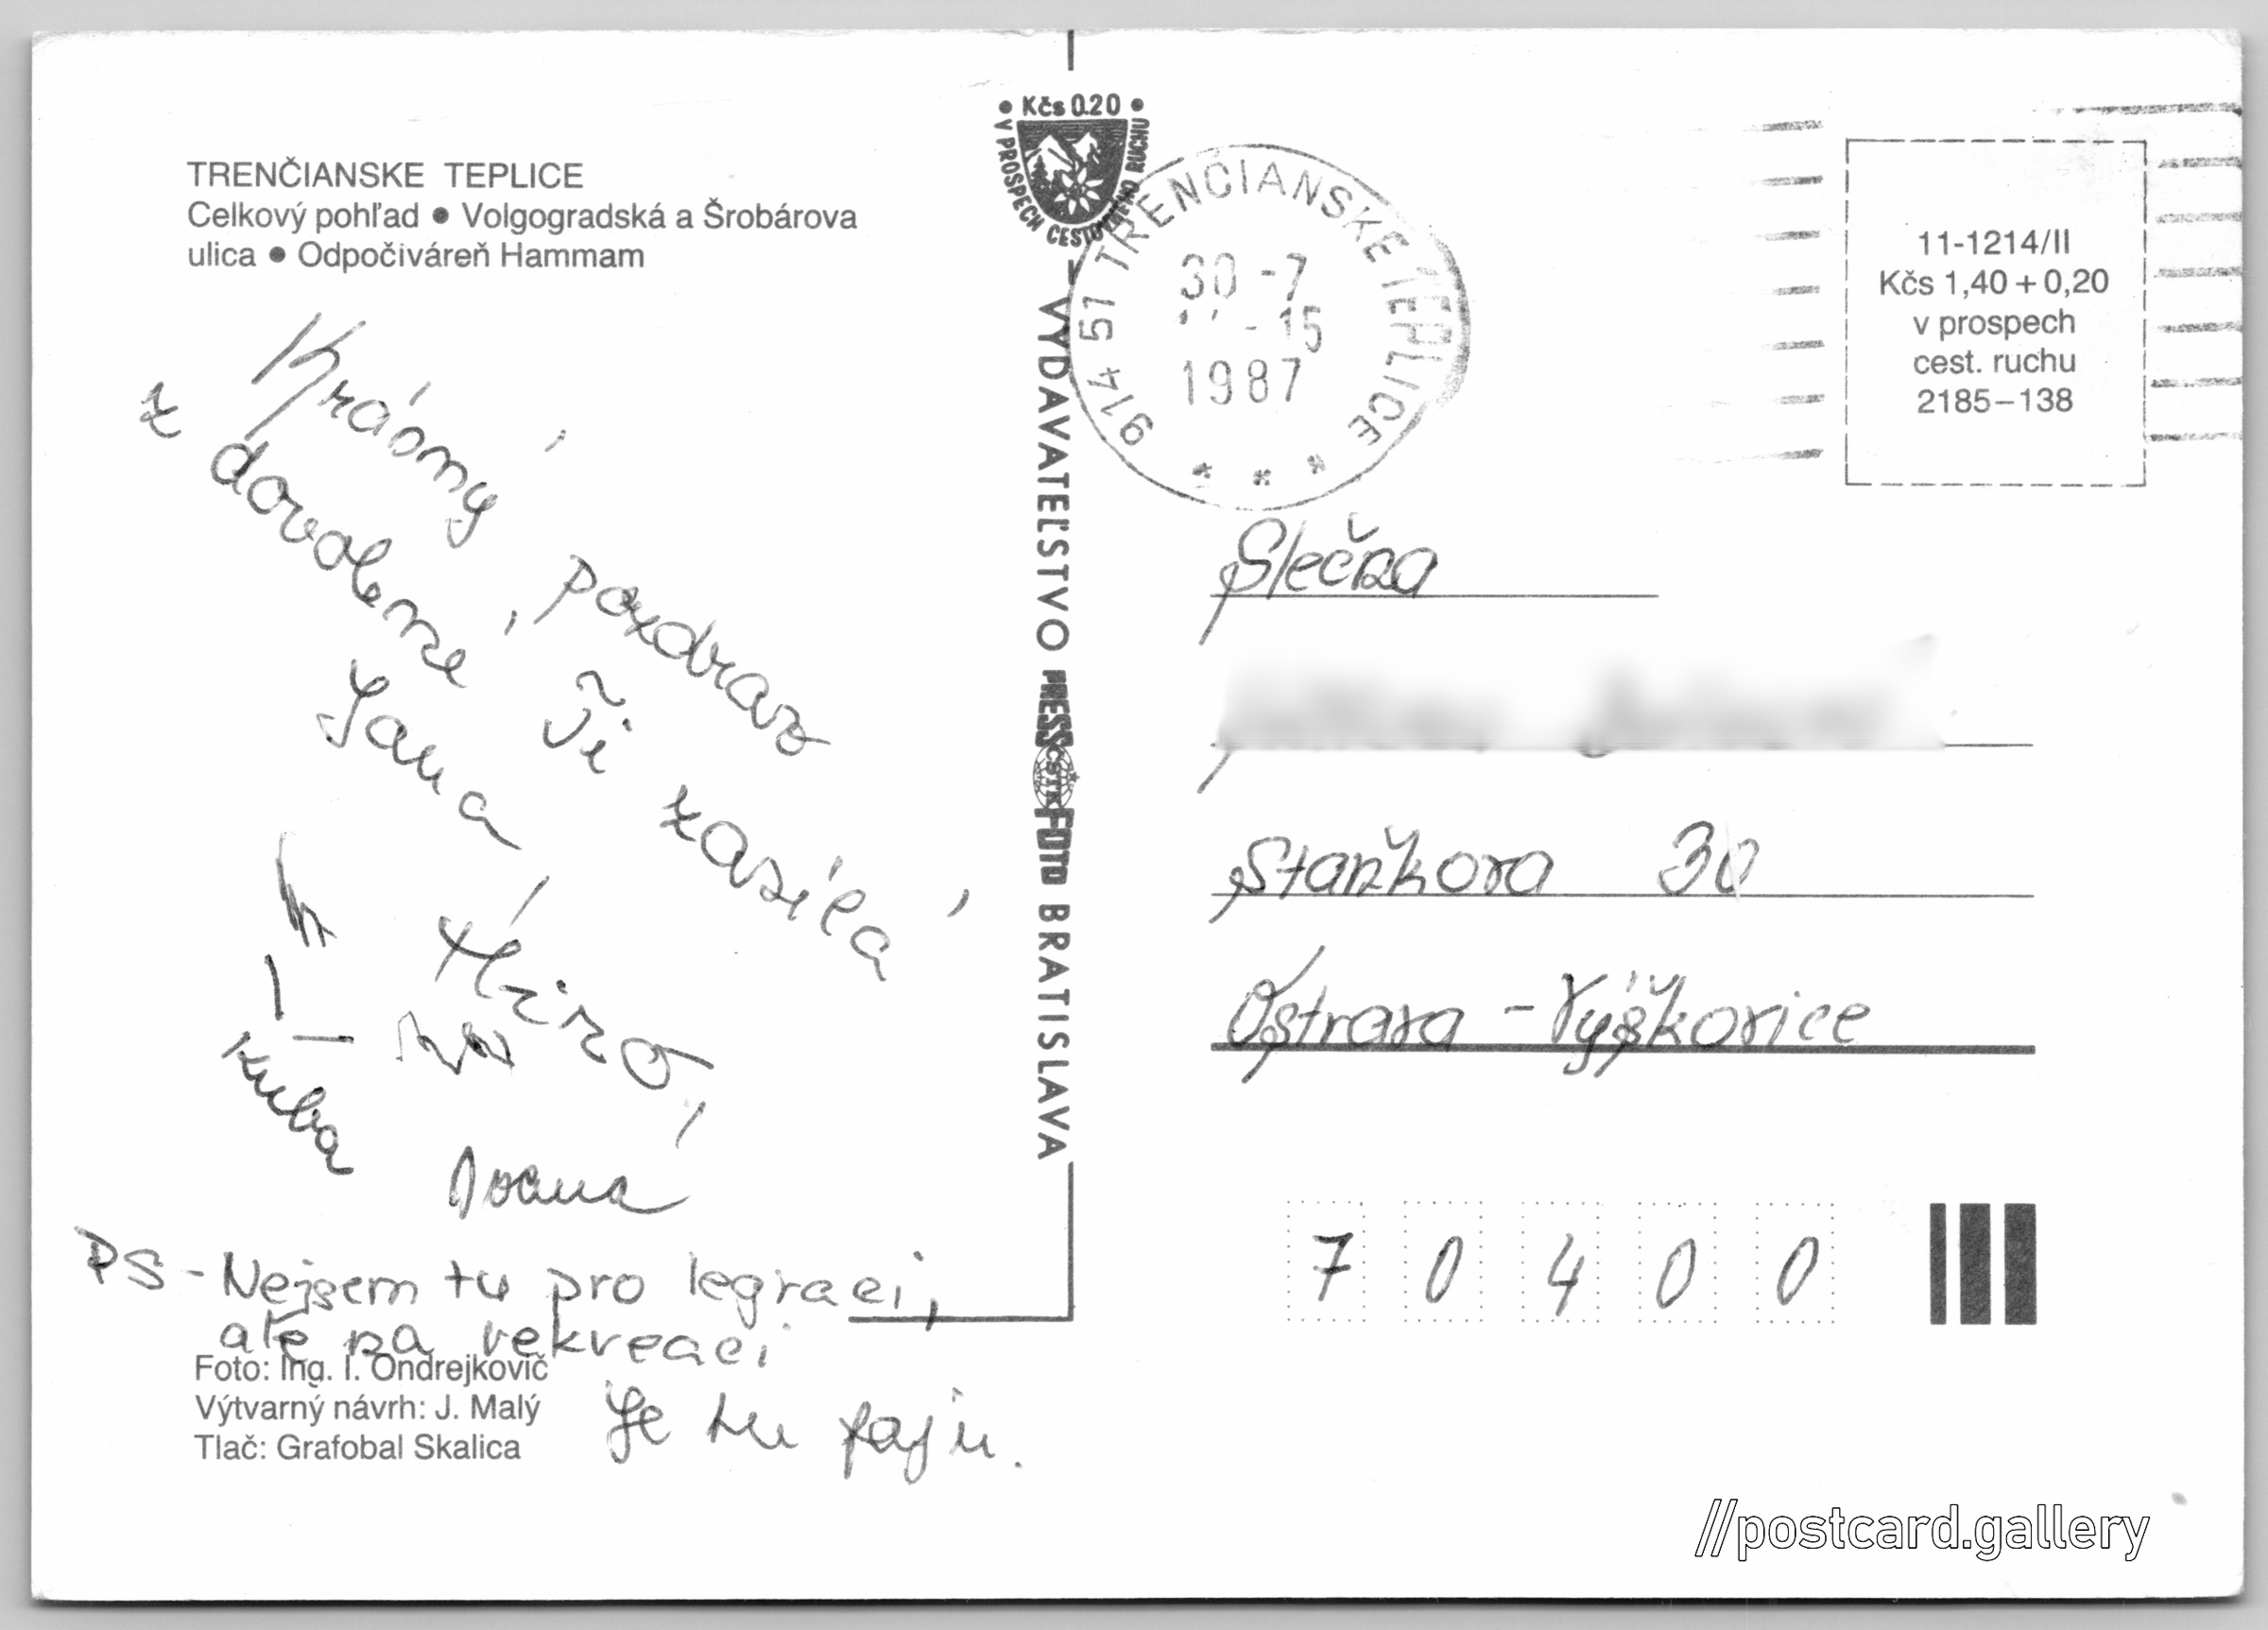 TRENČIANSKE TEPLICE
Celkový pohľad • Volgogradská a Šrobárova
ulica • Odpočiváreň Hammam
Krásný pozdrav
z dovolené Ti zasílá
Jana
Miro,
Kuba
Ivana
PS - Nejsem tu pro legraci,
ale na rekreaci
Je tu fajn.
Foto: Ing. I. Ondrejkovič
Výtvarný návrh: J. Malý
Tlač: Grafobal Skalica
• Kčs 0.20 •
V PROSPECH CESTOVNÉHO RUCHU
VYDAVATEĽSTVO PRESSFOTO BRATISLAVA
ČSTK
914 51 TRENČIANSKE TEPLICE
30 -7
-15
1987
* * *
11-1214/II
Kčs 1,40 + 0,20
v prospech
cest. ruchu
2185–138
Slečna
Staňkova 30
Ostrava - Výškovice
7 0 4 0 0
//postcard.gallery